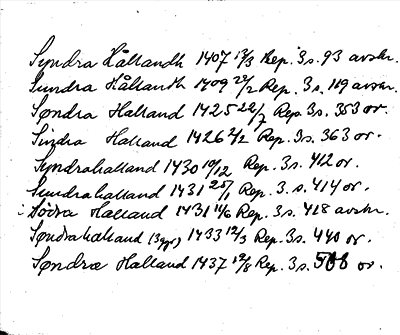 Syndra Hållandh 1407 12/3 Rep. 3 s. 93 avskr.
Sundra Hållandh 1409 22/2 Rep. 3 s. 119 avskr.
Søndra Halland 1425 22/7 Rep. 3 s. 353 or.
Sindra Halland 1426 2/2 Rep. 3 s. 363 or.
Syndrahalland 1430 10/12 Rep. 3 s. 412 or.
Sundrahalland 1431 25/1 Rep. 3. s. 414 or.
i Södra Halland 1431 11/6 Rep. 3 s. 418 avskr.
Søndrahalland (3 ggr) 1433 12/3 Rep. 3 s. 440 or.
Søndræ Halland 1437 12/8 Rep. 3 s. 508 or.